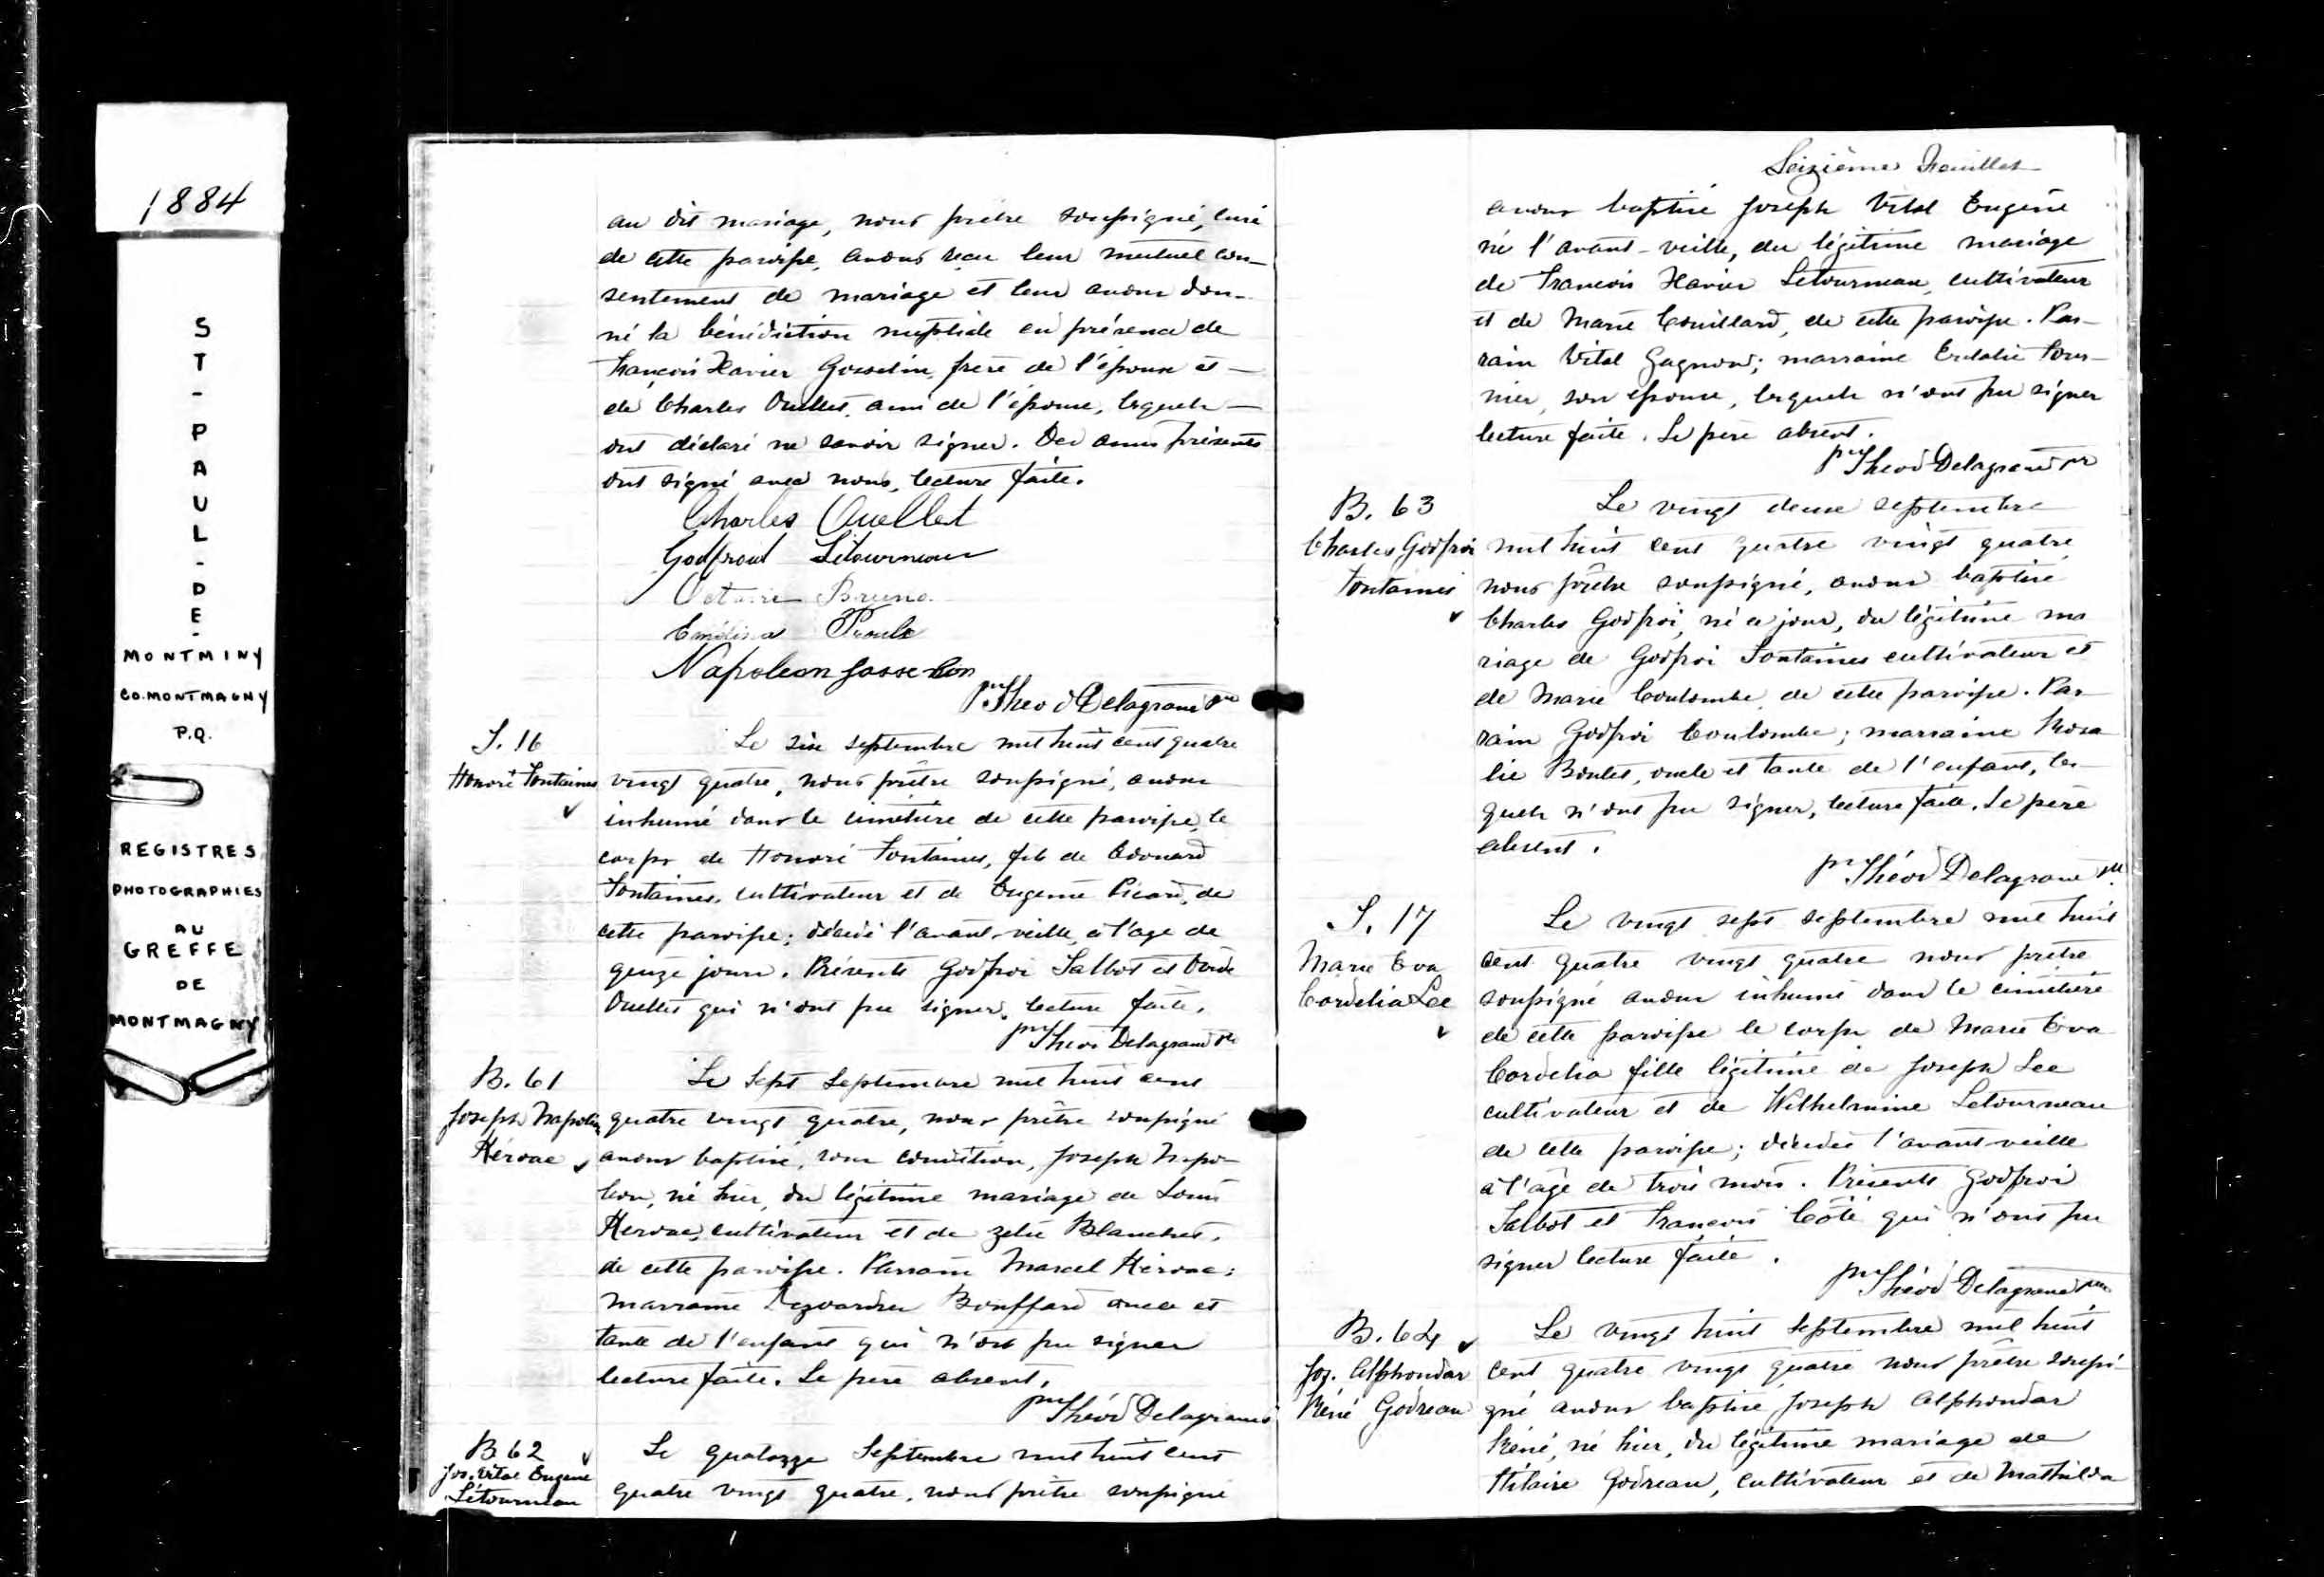 1884
S
T
-
P
A
U
L
-
D
E
-
MONTMINY
CO. MONTMAGNY
P.Q.
REGISTRES
PHOTOGRAPHIES
AU
GREFFE
DE
MONTMAGNY
au dit mariage, nous prêtre soussigné, curé
de cette paroisse, avons reçu leur mutuel con-
sentement de mariage et leur avons don-
né la bénédiction nuptiale en présence de
François Xavier Gosselin, frère de l'épouse et
de Charles Ouellet, ami de l'épouse, lesquels
ont déclaré ne savoir signer. Des amis présents
ont signé avec nous, lecture faite.
Charles Ouellet
Godfroid Létourneau
Octavie Bruno
Emélina Proulx
Napoleon Gosselin
Ptre Théod Delagrave Ptre
S. 16
Honoré Fontaines
Le six septembre mil huit cent quatre
vingt quatre, nous prêtre soussigné, avons
inhumé dans le cimetière de cette paroisse, le
corps de Honoré Fontaines, fils de Edouard
Fontaines, cultivateur et de Eugenie Picard, de
cette paroisse; décédé l'avant-veille, à l'age de
quinze jours. Présents Godfroi Talbot et
Ouellet qui n'ont pu signer, lecture faite.
Ptre Théod Delagrave Ptre
B. 61
Joseph Napoléon
Kéroac
Le sept septembre mil huit cent
quatre vingt quatre, nous prêtre soussigné
avons baptisé, sous condition, Joseph Napo-
léon, né hier, du légitime mariage de Louis
Keroac, cultivateur et de Zélie Blanchet,
de cette paroisse. Parrain Marcel Kéroac;
marraine Bouffard oncle et
tante de l'enfant qui n'ont pu signer
lecture faite. Le père absent.
Ptre Théod Delagrave
B 62
Jos. Vital Eugene
Létourneau
Le quatorze Septembre mil huit cent
quatre vingt quatre, nous prêtre soussigné
Seizième Feuillet
avons baptisé Joseph Vital Eugène
né l'avant-veille, du légitime mariage
de François Xavier Letourneau, cultivateur
et de Marie Couillard, de cette paroisse. Par-
rain Vital Gagnon; marraine Eulalie Four-
nier, son épouse, lesquels n'ont pu signer
lecture faite. Le père absent.
Ptre Théod Delagrave ptr
B. 63
Charles Godfroi
Fontaines
Le vingt deux septembre
mil huit cent quatre vingt quatre
nous prêtre soussigné, avons baptisé
Charles Godfroi, né ce jour, du légitime ma
riage de Godfroi Fontaines cultivateur et
de Marie Coulombe, de cette paroisse. Par-
rain Godfroi Coulombe; marraine Rosa
lie Boulet, oncle et tante de l'enfant, les-
quels n'ont pu signer, lecture faite. Le père
absent.
Ptr Théod Delagrave ptre
S. 17
Marie Eva
Cordelia Lee
Le vingt sept septembre mil huit
cent quatre vingt quatre nous prêtre
soussigné avons inhumé dans le cimetière
de cette paroisse le corps de Marie Eva
Cordelia fille légitime de Joseph Lee
cultivateur et de Wilhelmine Letourneau
de cette paroisse; décédée l'avant-veille
à l'âge de trois mois. Présents Godfroi
Talbot et François Côté qui n'ont pu
signer lecture faite.
Ptre Théod Delagrave ptre
B. 64
Jos. Alphondor
Réné Godreau
Le vingt huit septembre mil huit
cent quatre vingt quatre nous prêtre soussi-
gné avons baptisé Joseph Alphondor
Réné, né hier, du légitime mariage de
Hilaire Godreau, cultivateur et de Mathilda